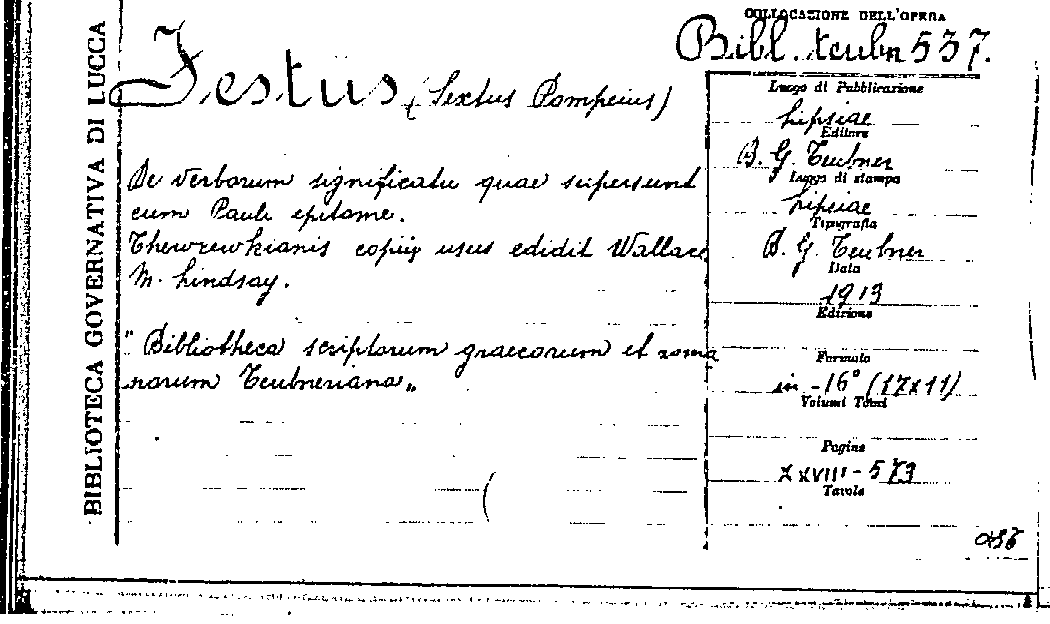 BIBLIOTECA GOVERNATIVA DI LUCCA
Festus (Sextus Pompeius)
De verborum significatu quae supersunt
cum Pauli epitome.
Thewrewkianis copiis usus edidit Wallace
M. Lindsay.
"Bibliotheca scriptorum graecorum et roma
norum Teubneriana„
COLLOCAZIONE DELL'OPERA
Bibl. teubn 537.
Luogo di Pubblicazione
Lipsiae
Editore
B. G. Teubner
Luogo di stampa
Lipsiae
Tipografia
B. G. Teubner
Data
1913
Edizione
Formato
in-16° (17x11)
Volumi Tomi
Pagine
XXVIII-573
Tavole